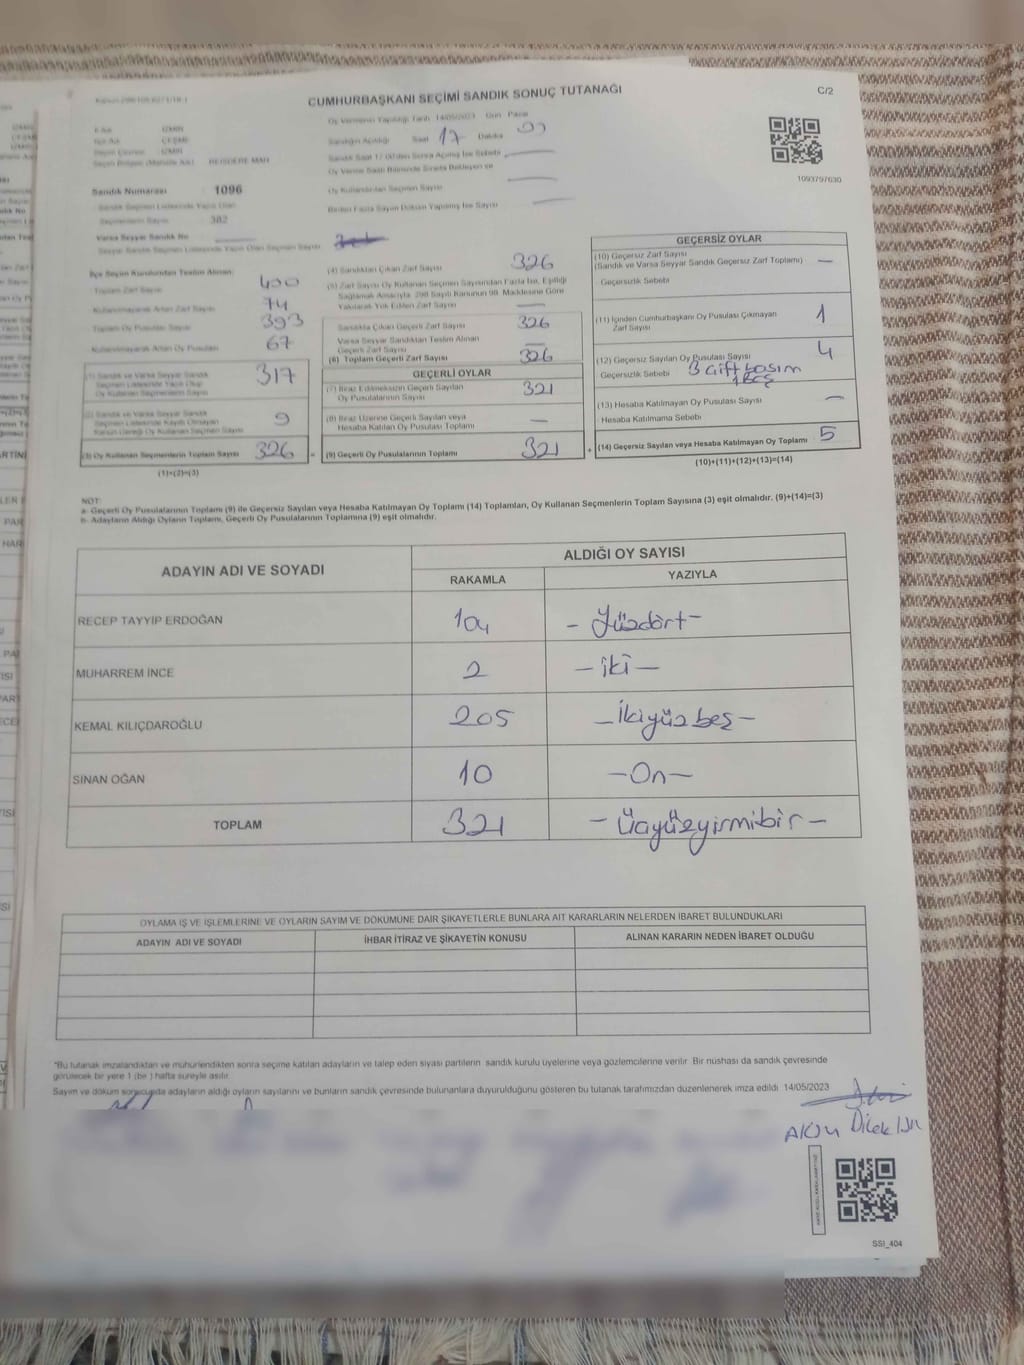 CUMHURBAŞKANI SEÇİMİ SANDIK SONUÇ TUTANAĞI
C/2
Oy Vermenin Yapıldığı Tarih 14/05/2023 Gün Pazar
Sandığın Açıldığı Saat 17 Dakika
1093797630
İZMİR
ÇEŞME
İZMİR
REİSDERE MAH
Sandık Numarası 1096
Seçmenlerin Sayısı 382
Varsa Seyyar Sandık No
İlçe Seçim Kurulundan Teslim Alınan:
Toplam Zarf Sayısı 400
Kullanılmayarak Artan Zarf Sayısı 74
Toplam Oy Pusulası Sayısı 393
Kullanılmayarak Artan Oy Pusulası 67
(1) Sandık ve Varsa Seyyar Sandık
Seçmen Listesinde Yazılı Olup
Oy Kullanan Seçmenlerin Sayısı 317
(2) Sandık ve Varsa Seyyar Sandık
Seçmen Listesinde Kayıtlı Olmayan
Kanun Gereği Oy Kullanan Seçmen Sayısı 9
(3) Oy Kullanan Seçmenlerin Toplam Sayısı 326
(1)+(2)=(3)
(4) Sandıktan Çıkan Zarf Sayısı 326
(5) Zarf Sayısı Oy Kullanan Seçmen Sayısından Fazla İse, Eşitliği
Sağlamak Amacıyla 298 Sayılı Kanunun 98. Maddesine Göre
Yakılarak Yok Edilen Zarf Sayısı —
Sandıkta Çıkan Geçerli Zarf Sayısı 326
Varsa Seyyar Sandıktan Teslim Alınan
Geçerli Zarf Sayısı —
(6) Toplam Geçerli Zarf Sayısı 326
GEÇERLİ OYLAR
(7) İtiraz Edilmeksizin Geçerli Sayılan
Oy Pusulalarının Sayısı 321
(8) İtiraz Üzerine Geçerli Sayılan veya
Hesaba Katılan Oy Pusulası Toplamı —
(9) Geçerli Oy Pusulalarının Toplamı 321
GEÇERSİZ OYLAR
(10) Geçersiz Zarf Sayısı
(Sandık ve Varsa Seyyar Sandık Geçersiz Zarf Toplamı) —
Geçersizlik Sebebi
(11) İçinden Cumhurbaşkanı Oy Pusulası Çıkmayan
Zarf Sayısı 1
(12) Geçersiz Sayılan Oy Pusulası Sayısı 4
Geçersizlik Sebebi 3 Çift basım
1 Boş
(13) Hesaba Katılmayan Oy Pusulası Sayısı —
Hesaba Katılmama Sebebi
(14) Geçersiz Sayılan veya Hesaba Katılmayan Oy Toplamı 5
(10)+(11)+(12)+(13)=(14)
NOT:
a- Geçerli Oy Pusulalarının Toplamı (9) ile Geçersiz Sayılan veya Hesaba Katılmayan Oy Toplamı (14) Toplamları, Oy Kullanan Seçmenlerin Toplam Sayısına (3) eşit olmalıdır. (9)+(14)=(3)
b- Adayların Aldığı Oyların Toplamı, Geçerli Oy Pusulalarının Toplamına (9) eşit olmalıdır.
ADAYIN ADI VE SOYADI
ALDIĞI OY SAYISI
RAKAMLA YAZIYLA
RECEP TAYYİP ERDOĞAN 104 - Yüzdört -
MUHARREM İNCE 2 - iki -
KEMAL KILIÇDAROĞLU 205 - İkiyüzbeş -
SİNAN OĞAN 10 - On -
TOPLAM 321 - Üçyüzyirmibir -
OYLAMA İŞ VE İŞLEMLERİNE VE OYLARIN SAYIM VE DÖKÜMÜNE DAİR ŞİKAYETLERLE BUNLARA AİT KARARLARIN NELERDEN İBARET BULUNDUKLARI
ADAYIN ADI VE SOYADI İHBAR İTİRAZ VE ŞİKAYETİN KONUSU ALINAN KARARIN NEDEN İBARET OLDUĞU
*Bu tutanak imzalandıktan ve mühürlendikten sonra seçime katılan adayların ve talep eden siyasi partilerin sandık kurulu üyelerine veya gözlemcilerine verilir. Bir nüshası da sandık çevresinde
görülecek bir yere 1 (bir) hafta süreyle asılır.
Sayım ve döküm sonucunda adayların aldığı oyların sayılarını ve bunların sandık çevresinde bulunanlara duyurulduğunu gösteren bu tutanak tarafımızdan düzenlenerek imza edildi. 14/05/2023
SSI_404